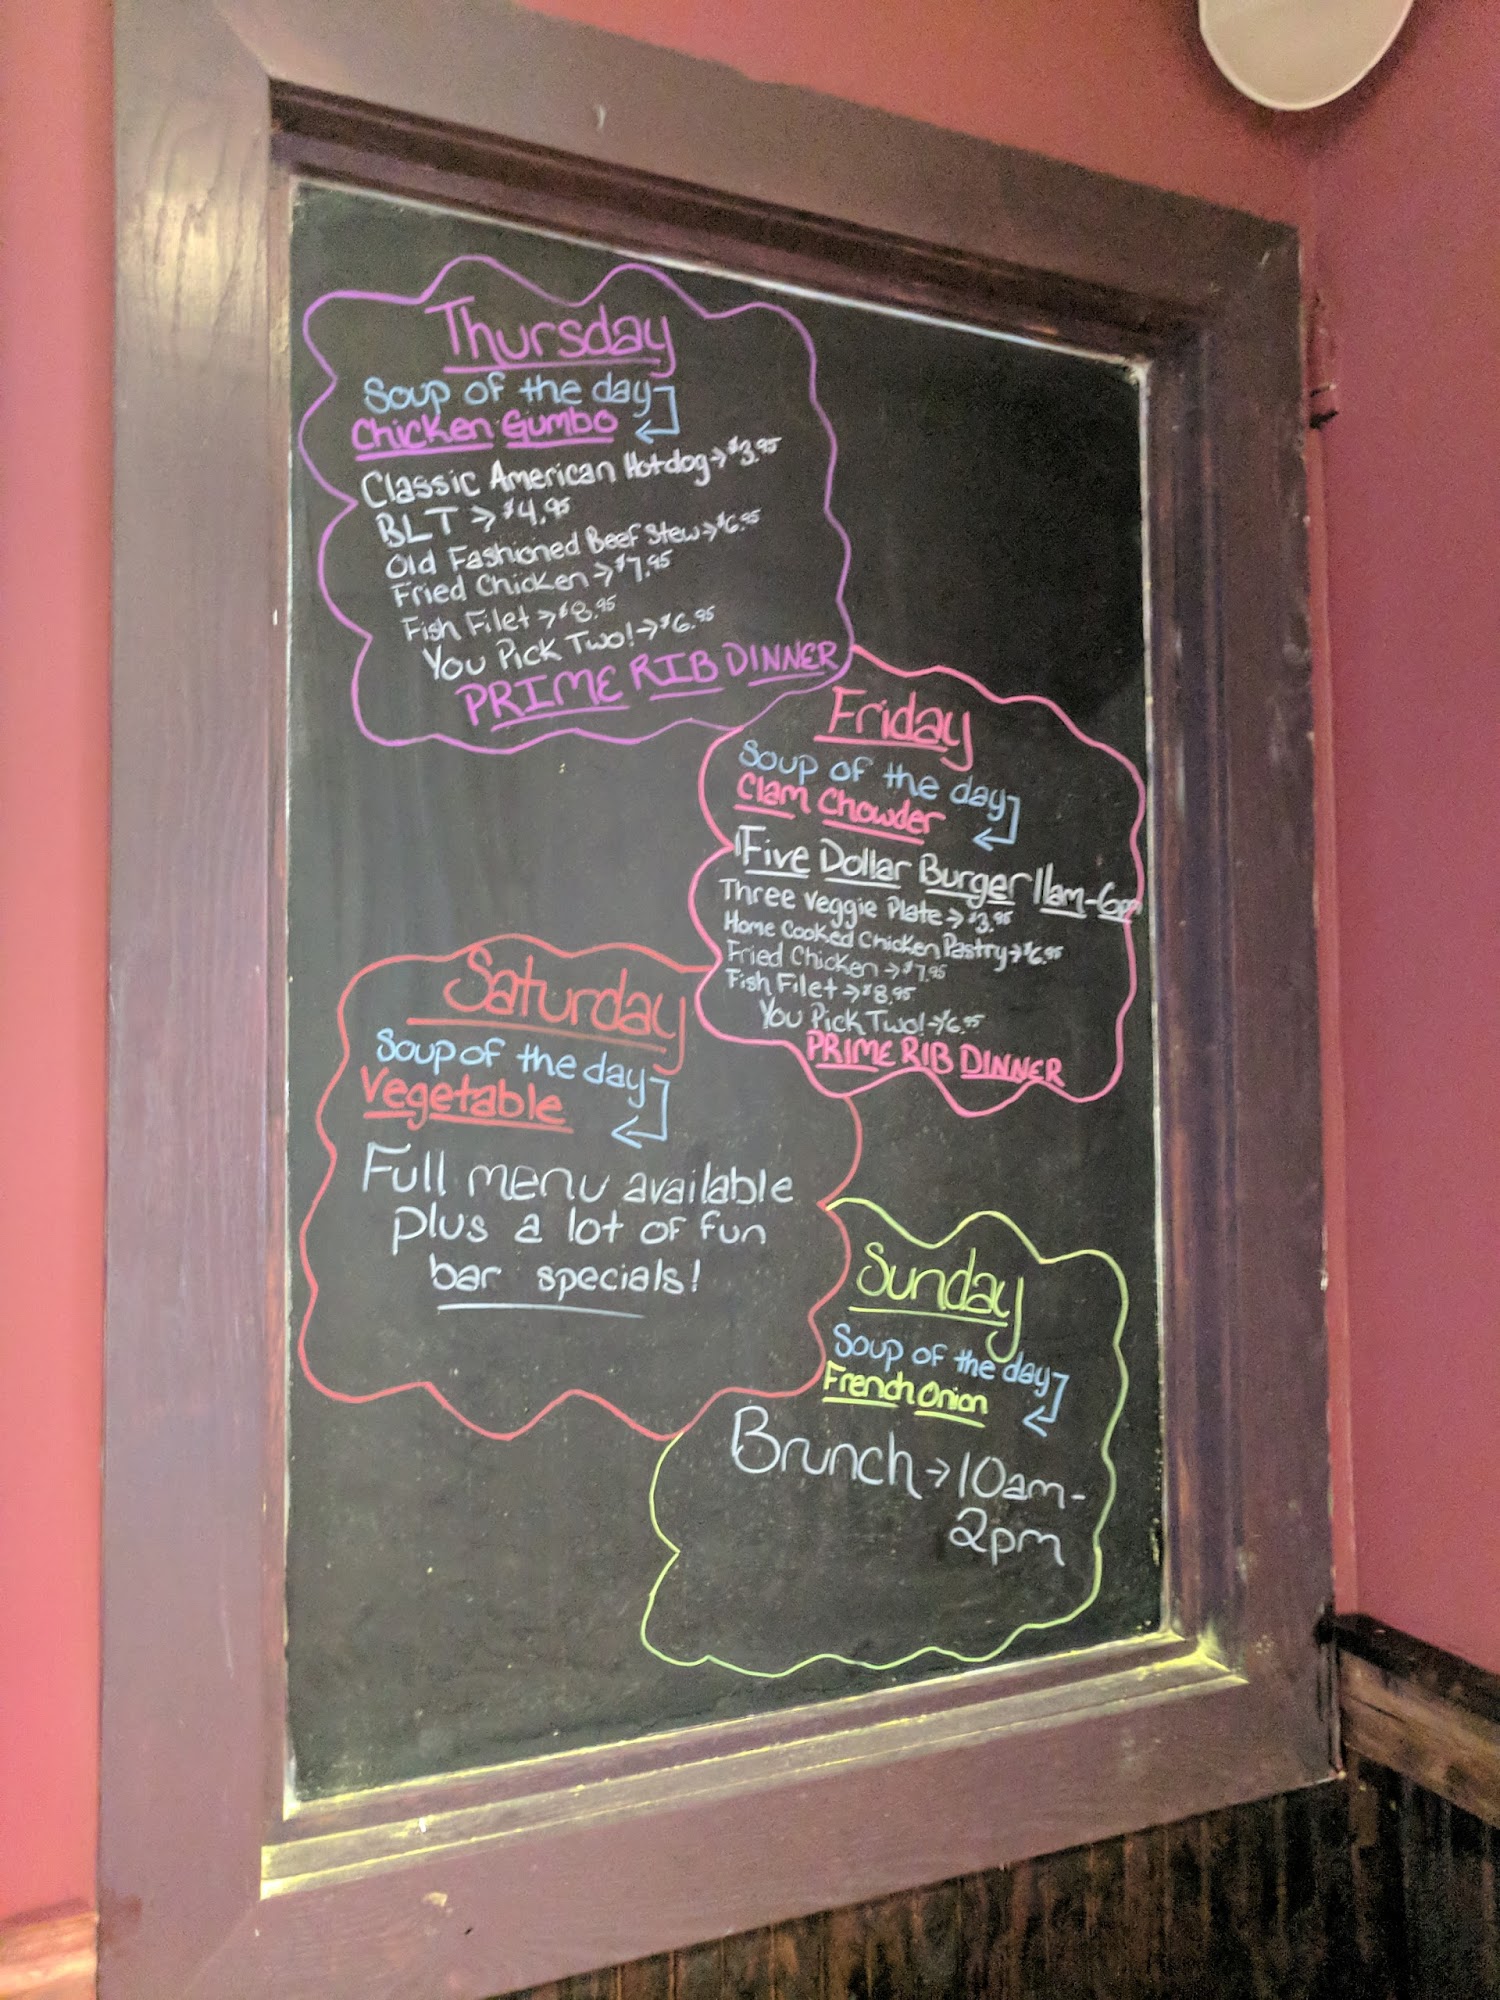 Thursday
Soup of the day
Chicken Gumbo
Classic American Hotdog → $3.95
BLT → $4.95
Old Fashioned Beef Stew → $6.95
Fried Chicken → $7.95
Fish Filet → $8.95
You Pick Two! → $6.95
PRIME RIB DINNER
Friday
Soup of the day
Clam Chowder
Five Dollar Burger 11am-6pm
Three Veggie Plate → $3.95
Home Cooked Chicken Pastry → $6.95
Fried Chicken → $7.95
Fish Filet → $8.95
You Pick Two! → $6.95
PRIME RIB DINNER
Saturday
Soup of the day
Vegetable
Full menu available
plus a lot of fun
bar specials!
Sunday
Soup of the day
French Onion
Brunch → 10am-
2pm